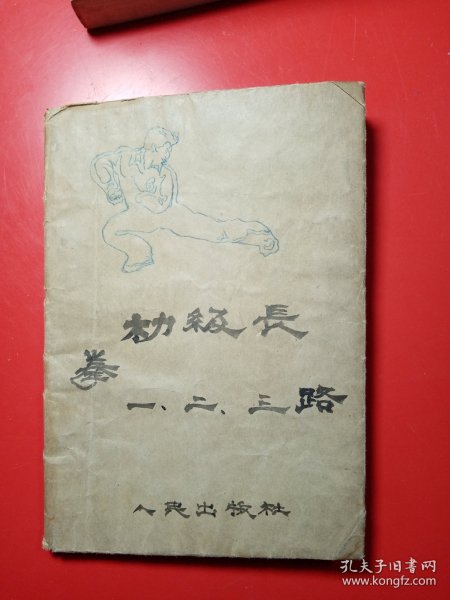 初级長
拳
一、二、三路
人民出版社
孔夫子旧书网
www.kongfz.com